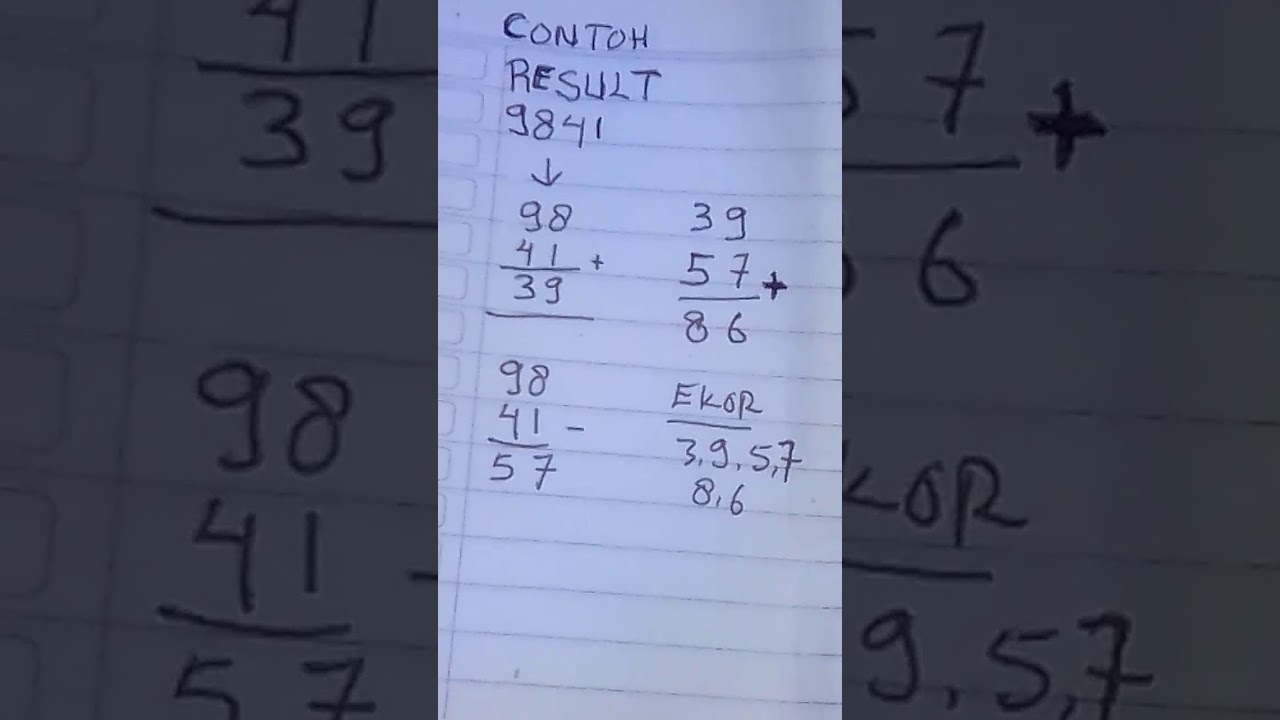 CONTOH
RESULT
9841
↓
98
41 +
39
98
41 -
57
39
57 +
86
EKOR
3,9,5,7
8,6